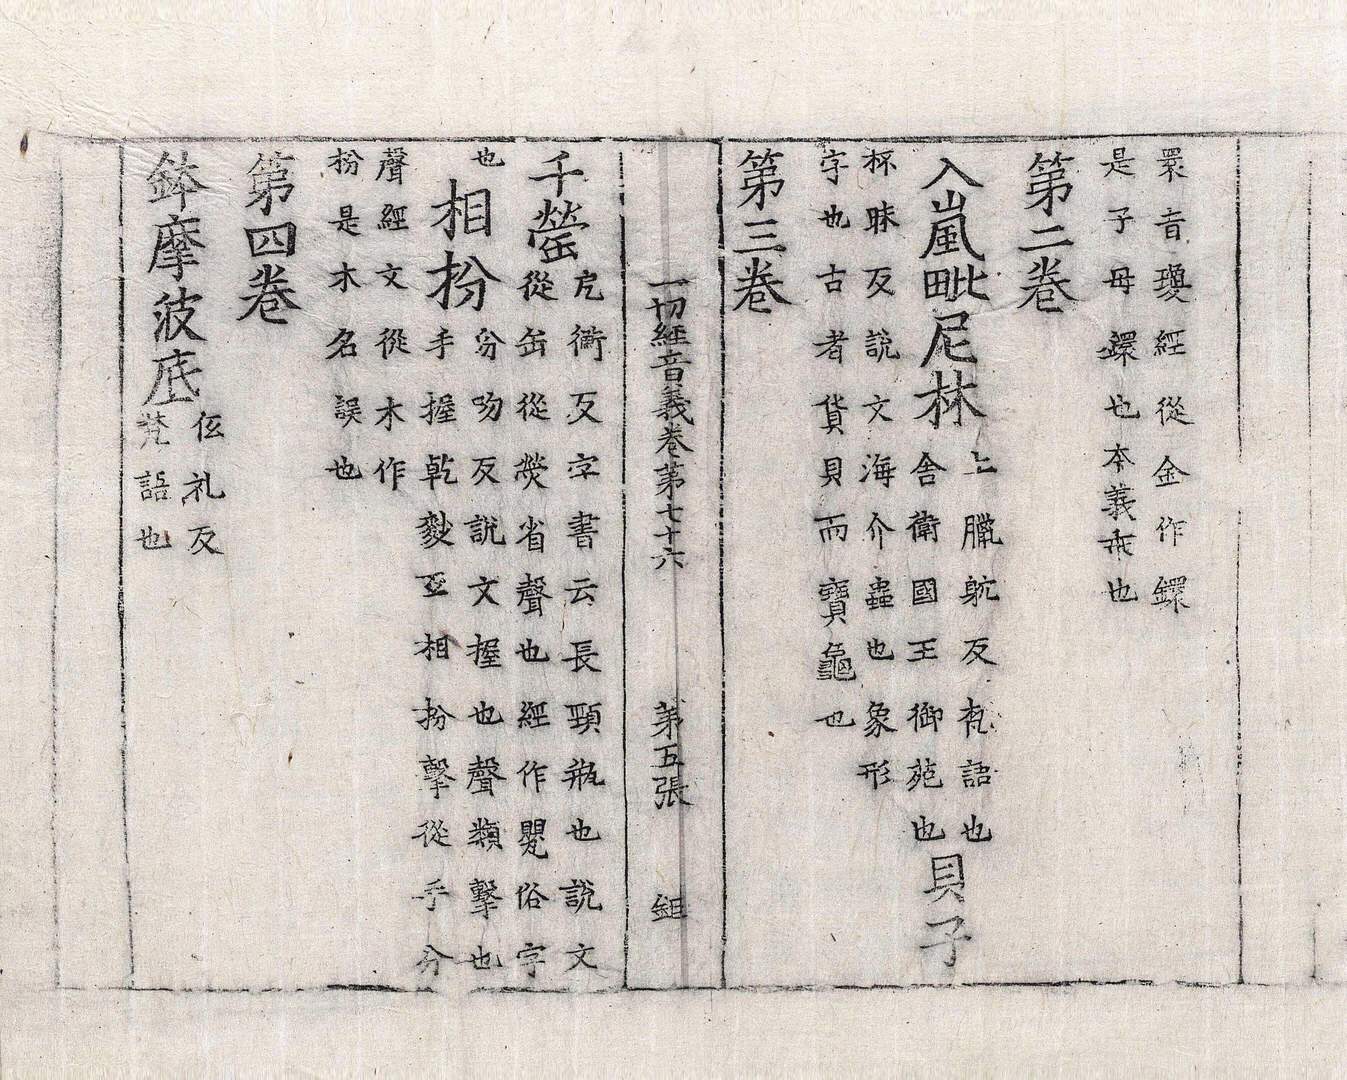 還音瓊經從金作鐶
是子母鐶也本義亦也
第二卷
入嵐毗尼林
上臘躭反梵語也
舍衛國王御苑也
貝子
杯昧反說文海介蟲也象形
字也古者貨貝而寶龜也
第三卷
一切經音義卷第七十六 第五張 鉏
千罃
戹衡反字書云長頸瓶也說文
從缶從熒省聲也經作甖俗字
也
相扮
分吻反說文握也聲類擊也
手握乾麨互相扮擊從手分
聲經文從木作
枌是木名誤也
第四卷
鉢摩波底
低礼反
梵語也